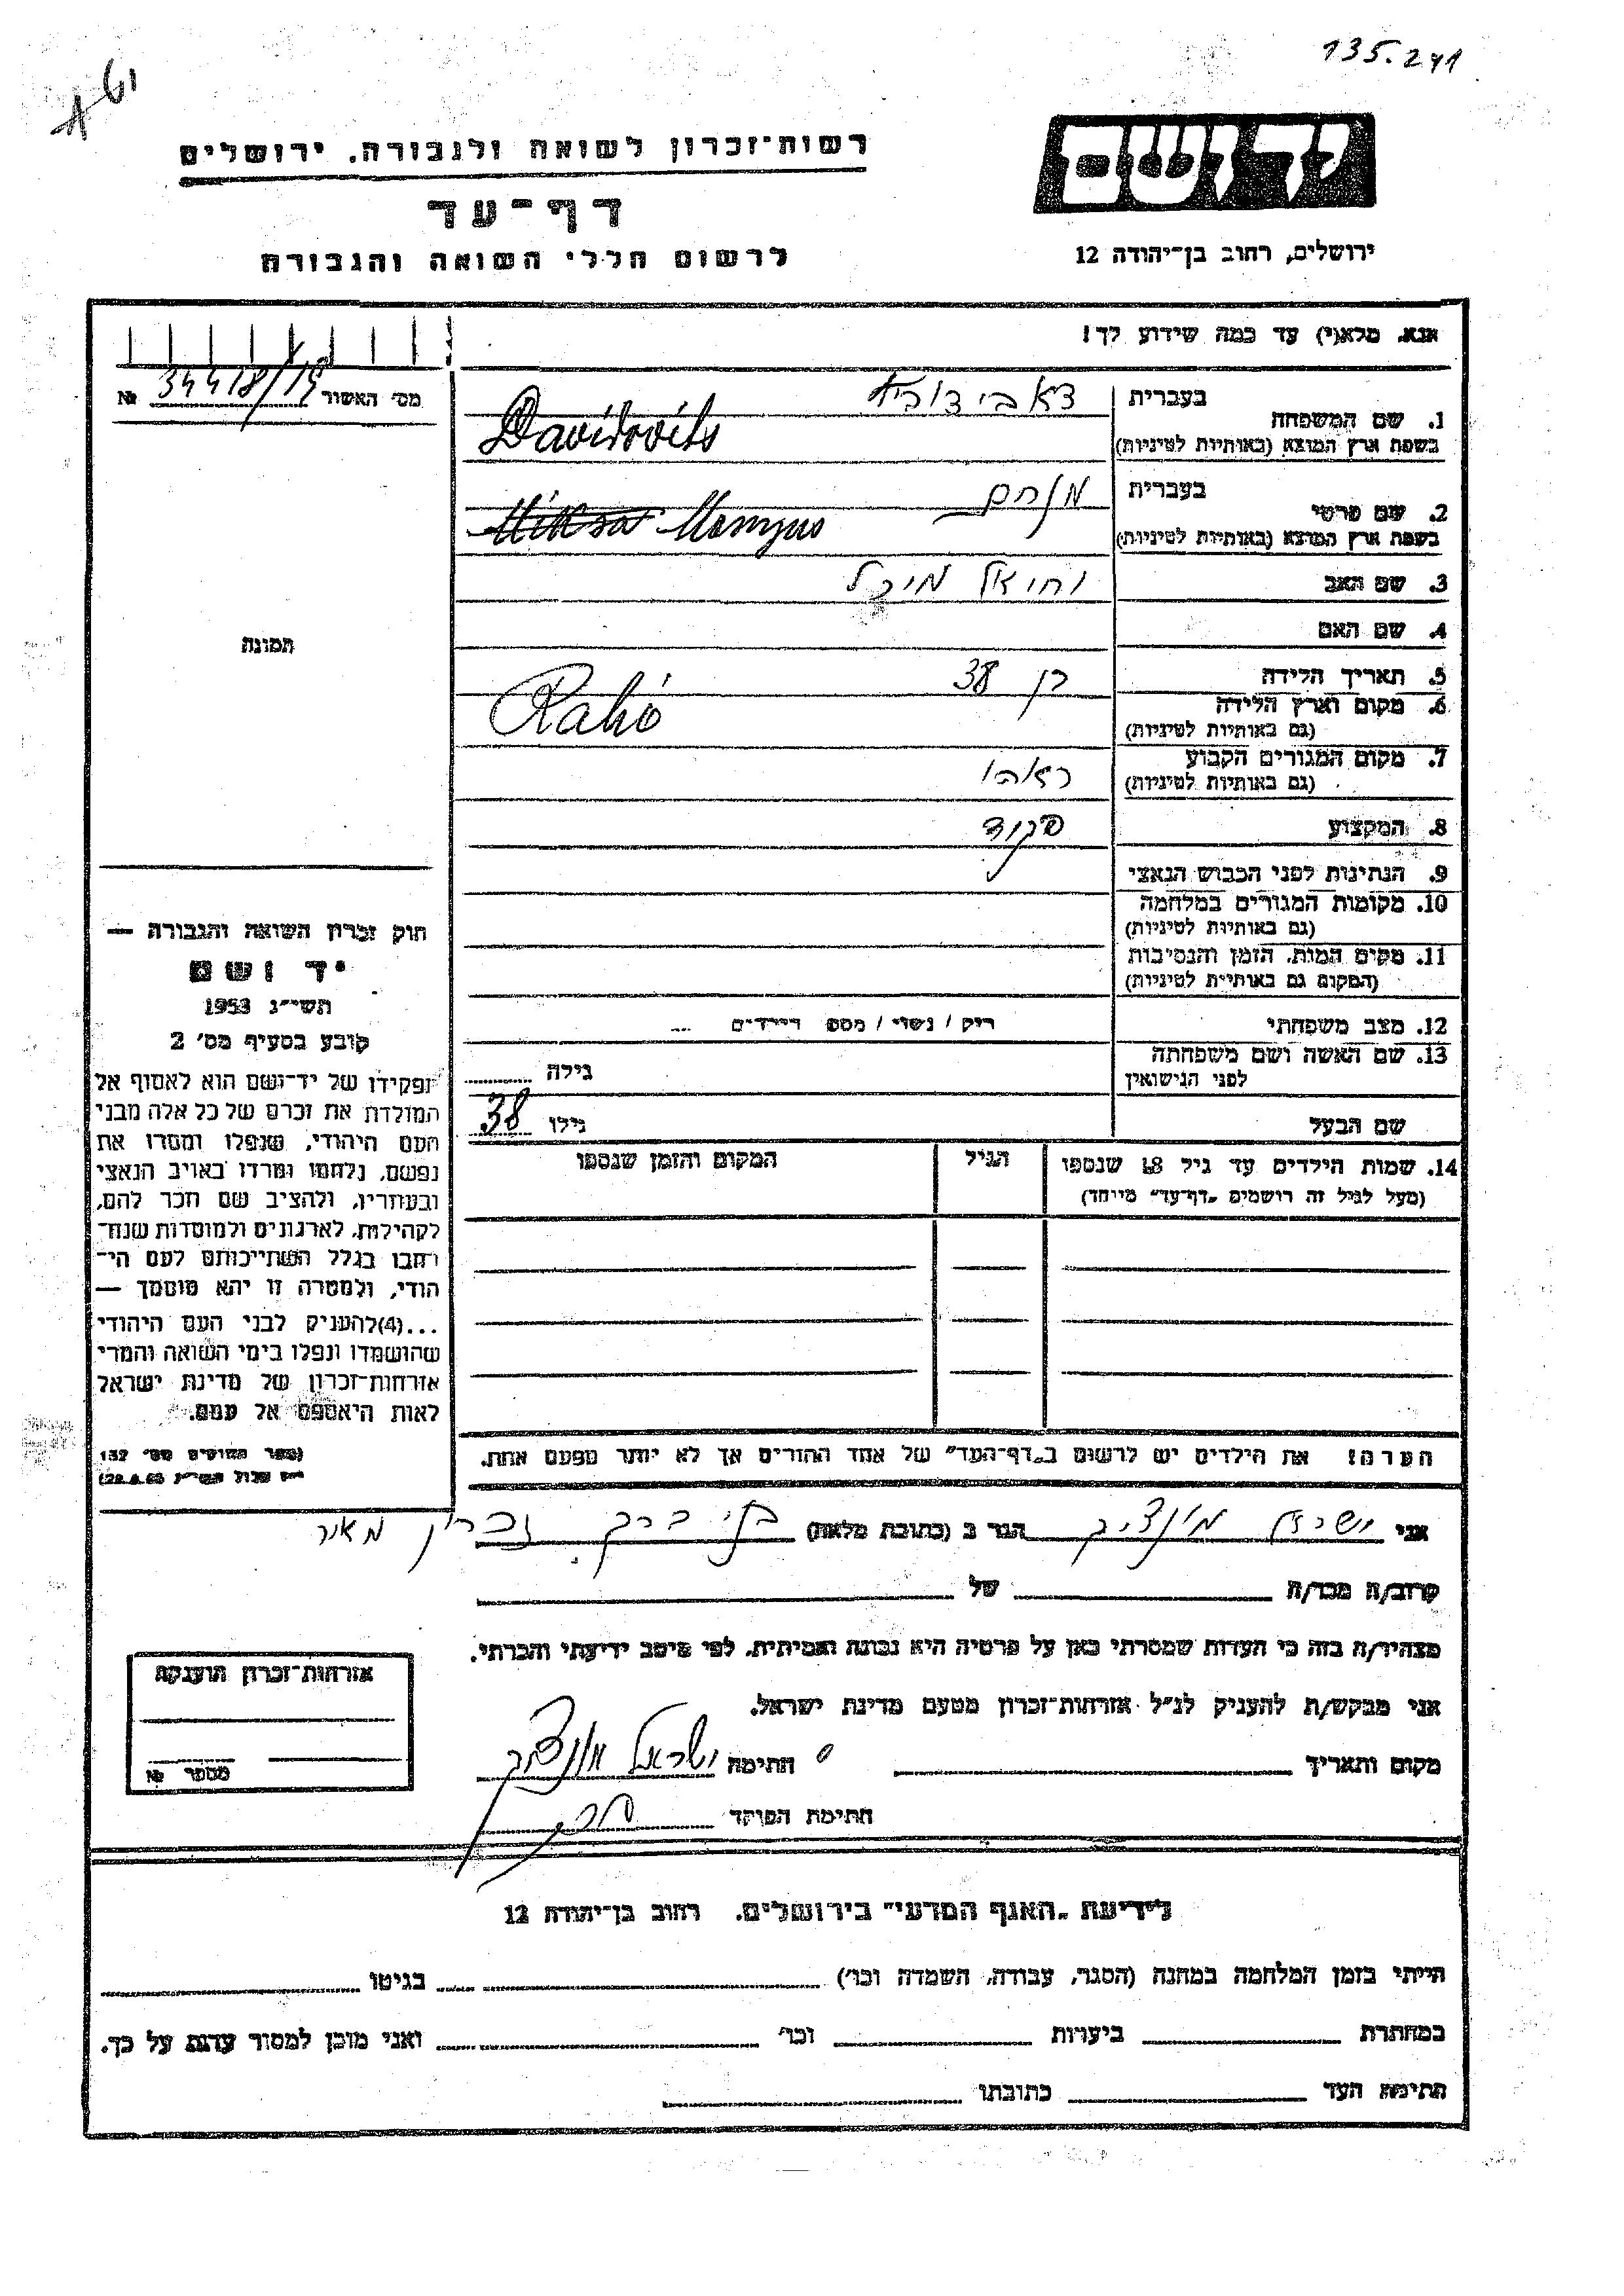 135.241
יד ושם
רשות־זכרון לשואה ולגבורה, ירושלים
דף־עד
לרשום חללי השואה והגבורה
ירושלים, רחוב בן־יהודה 12
אנא, מלא(י) עד כמה שידוע לך!
מס׳ האשור № 34418/19
1. שם המשפחה
בעברית
בשפת ארץ המוצא (באותיות לטיניות)
Davidovits
2. שם פרטי
בעברית מנחם
בשפת ארץ המוצא (באותיות לטיניות)
Miksa
3. שם האב
4. שם האם
5. תאריך הלידה בן 38
6. מקום וארץ הלידה
(גם באותיות לטיניות)
Rahó
7. מקום המגורים הקבוע
(גם באותיות לטיניות)
ראהו
8. המקצוע פקיד
9. הנתינות לפני הכבוש הנאצי
10. מקומות המגורים במלחמה
(גם באותיות לטיניות)
11. מקום המות, הזמן והנסיבות
(המקום גם באותיות לטיניות)
12. מצב משפחתי
13. שם האשה ושם משפחתה
לפני הנישואין
גילה
שם הבעל
גילו 38
14. שמות הילדים עד גיל 18 שנספו
(מעל לגיל זה רושמים „דף־עד״ מיוחד)
הגיל
המקום והזמן שנספו
הערה! את הילדים יש לרשום ב„דף־העד״ של אחד ההורים אך לא יותר מפעם אחת.
תמונה
חוק זכרון השואה והגבורה —
יד ושם
תשי״ג 1953
קובע בסעיף מס׳ 2
תפקידו של יד־ושם הוא לאסוף אל
המולדת את זכרם של כל אלה מבני
העם היהודי, שנפלו ומסרו את
נפשם, נלחמו ומרדו באויב הנאצי
ובעוזריו, ולהציב שם וזכר להם,
לקהילות, לארגונים ולמוסדות שנח־
רבו בגלל השתייכותם לעם הי־
הודי, ולמטרה זו יהא מוסמך —
...(4)להעניק לבני העם היהודי
שהושמדו ונפלו בימי השואה והמרי
אזרחות־זכרון של מדינת ישראל
לאות היאספם אל עמם.
אני ישראל הגר ב (כתובת מלאה) בני ברק זכרון מאיר
קרוב/ה מכר/ה של
מצהיר/ה בזה כי העדות שמסרתי כאן על פרטיה היא נכונה ואמיתית, לפי מיטב ידיעתי והכרתי.
אני מבקש/ת להעניק לנ״ל אזרחות־זכרון מטעם מדינת ישראל.
מקום ותאריך חתימה ישראל
חתימת הפוקד
אזרחות־זכרון הוענקה
מספר №
לידיעת „האגף המדעי״ בירושלים, רחוב בן־יהודה 12
הייתי בזמן המלחמה במחנה (הסגר, עבודה, השמדה וכו׳) בגיטו
במחתרת ביערות וכו׳ ואני מוכן למסור עדות על כך.
חתימת העד כתובתו